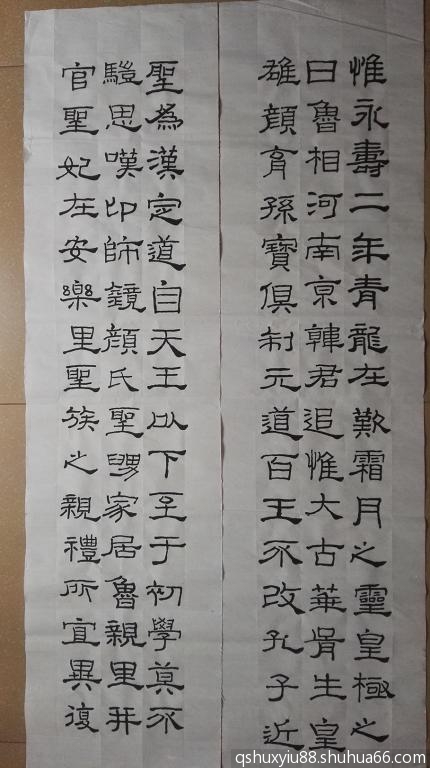 惟永壽二年青龍在歎霜月之靈皇極之
日魯相河南京韓君追惟大古華胥生皇
雄顏育孫寶俱制元道百王不改孔子近
聖為漢定道自天王以下至于初學莫不
思嘆卬師鏡顏氏聖舅家居魯親里并
官聖妃在安樂里聖族之親禮所宜異復
qshuxyiu88.shuhua66.com